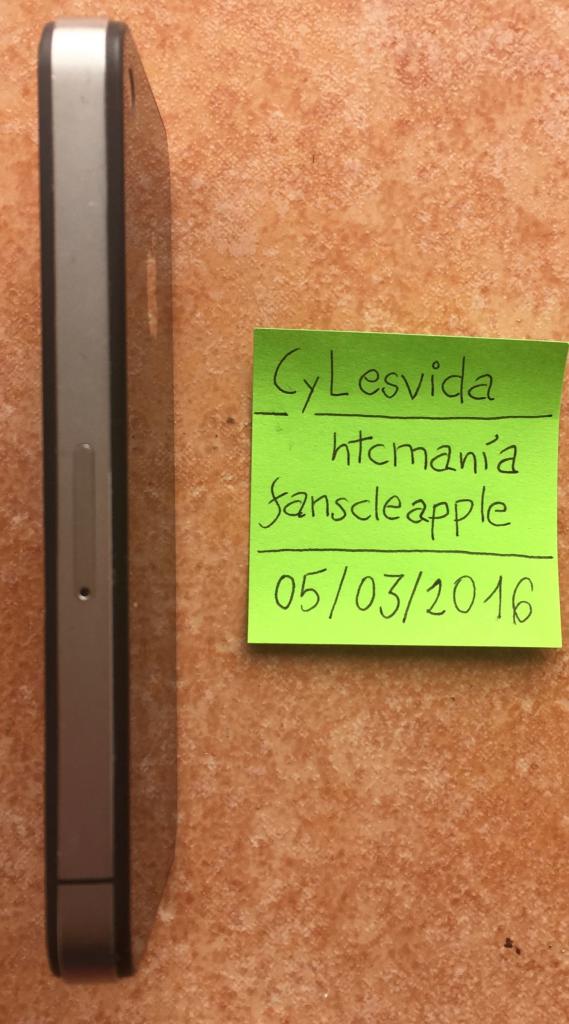 CyLesvida
htcmanía
fanscleapple
05/03/2016